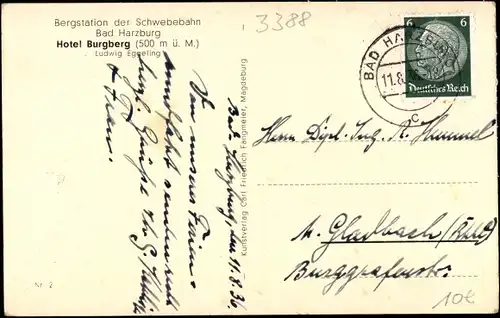 Bergstation der Schwebebahn
Bad Harzburg
Hotel Burgberg (500 m ü. M.)
Ludwig Eggeling
3388
6 6
Deutsches Reich
BAD HARZBURG
11.8.
c
Bad Harzburg, den 11.8.36
Von unserer Ferien-
senden
herzl. Grüße Ihr G.
u. Frau.
Kunstverlag Carl Friedrich Fangmeier, Magdeburg
Herrn Dipl.-Ing. R. Hummel
M. Gladbach
Burggrafenstr.
Nr. 2
10€